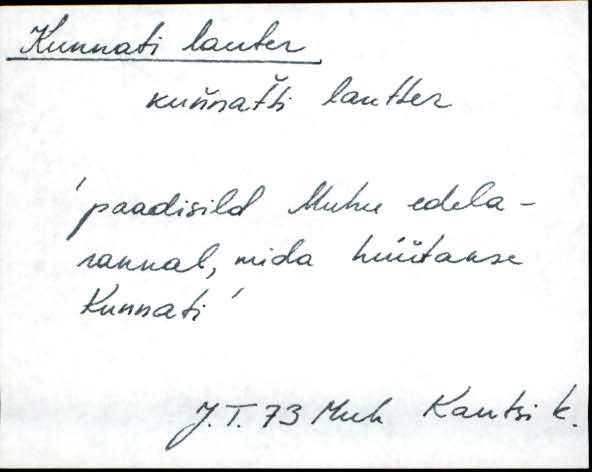 Kunnati lauter
kuňnaťťi lautter
'paadisild Muhu edela-
rannal, mida hüütakse
Kunnati'
J.T. 73 Muh Kantsi k.